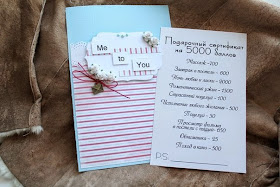 Me
to
You
Подарочный сертификат
на 5000 баллов
Массаж - 100
Завтрак в постель - 600
Ночь любви и ласки - 2000
Романтический ужин - 1500
Страстный поцелуй - 100
Исполнение любого желания - 500
Поцелуй - 50
Просмотр фильма
в постели с - 650
Обнимашки - 25
Поход в кино - 500
P.S.: